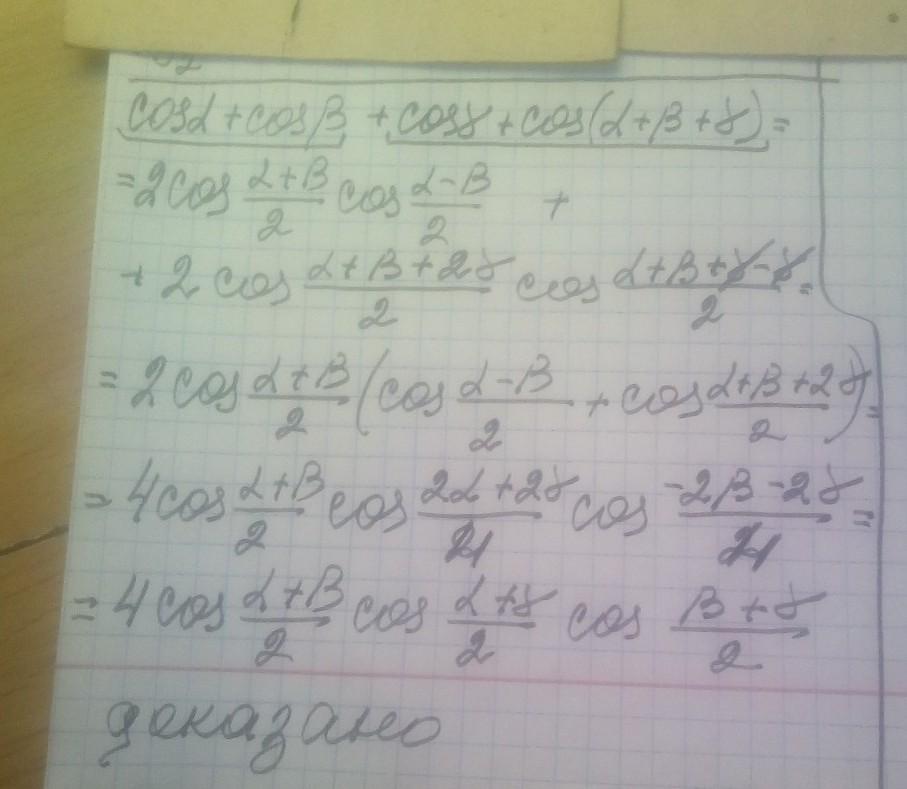 cosα + cosβ + cosγ + cos(α+β+γ) =
= 2cos (α+β)/2 cos (α-β)/2 +
+ 2 cos (α+β+2γ)/2 cos (α+β+γ-γ)/2 =
= 2cos (α+β)/2 (cos (α-β)/2 + cos (α+β+2γ)/2) =
= 4cos (α+β)/2 cos (2α+2γ)/4 cos (-2β-2γ)/4 =
= 4cos (α+β)/2 cos (α+γ)/2 cos (β+γ)/2
доказано